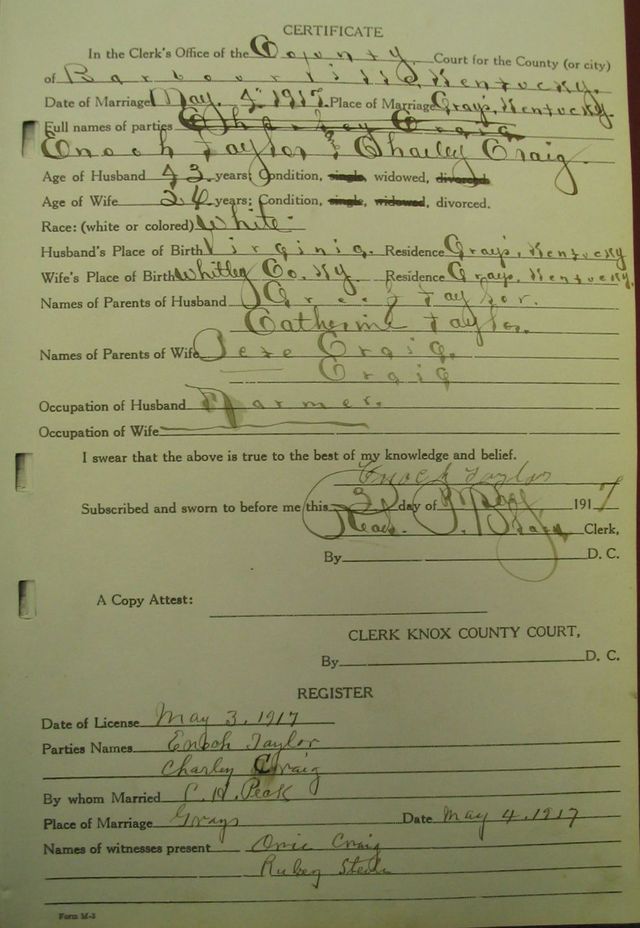 CERTIFICATE
In the Clerk's Office of the County Court for the County (or city)
of Barbourville, Kentucky.
Date of Marriage May. 4" 1917. Place of Marriage Grays, Kentucky.
Full names of parties Charley Craig
Enoch Taylor & Charley Craig.
Age of Husband 43 years; Condition, single, widowed, divorced
Age of Wife years; Condition, single, widowed, divorced.
Race: (white or colored) White
Husband's Place of Birth Virginia. Residence Grays, Kentucky
Wife's Place of Birth Whitley Co. Ky. Residence Grays, Kentucky.
Names of Parents of Husband Taylor.
Catherine Taylor.
Names of Parents of Wife Craig.
Craig
Occupation of Husband Farmer.
Occupation of Wife
I swear that the above is true to the best of my knowledge and belief.
Enoch Taylor
Subscribed and sworn to before me this day of 1917
Clerk,
By D. C.
A Copy Attest:
CLERK KNOX COUNTY COURT,
By D. C.
REGISTER
Date of License May 3, 1917
Parties Names Enoch Taylor
Charley Craig
By whom Married C. H. Peak
Place of Marriage Grays Date May 4, 1917
Names of witnesses present Craig
Rubey
Form M-3